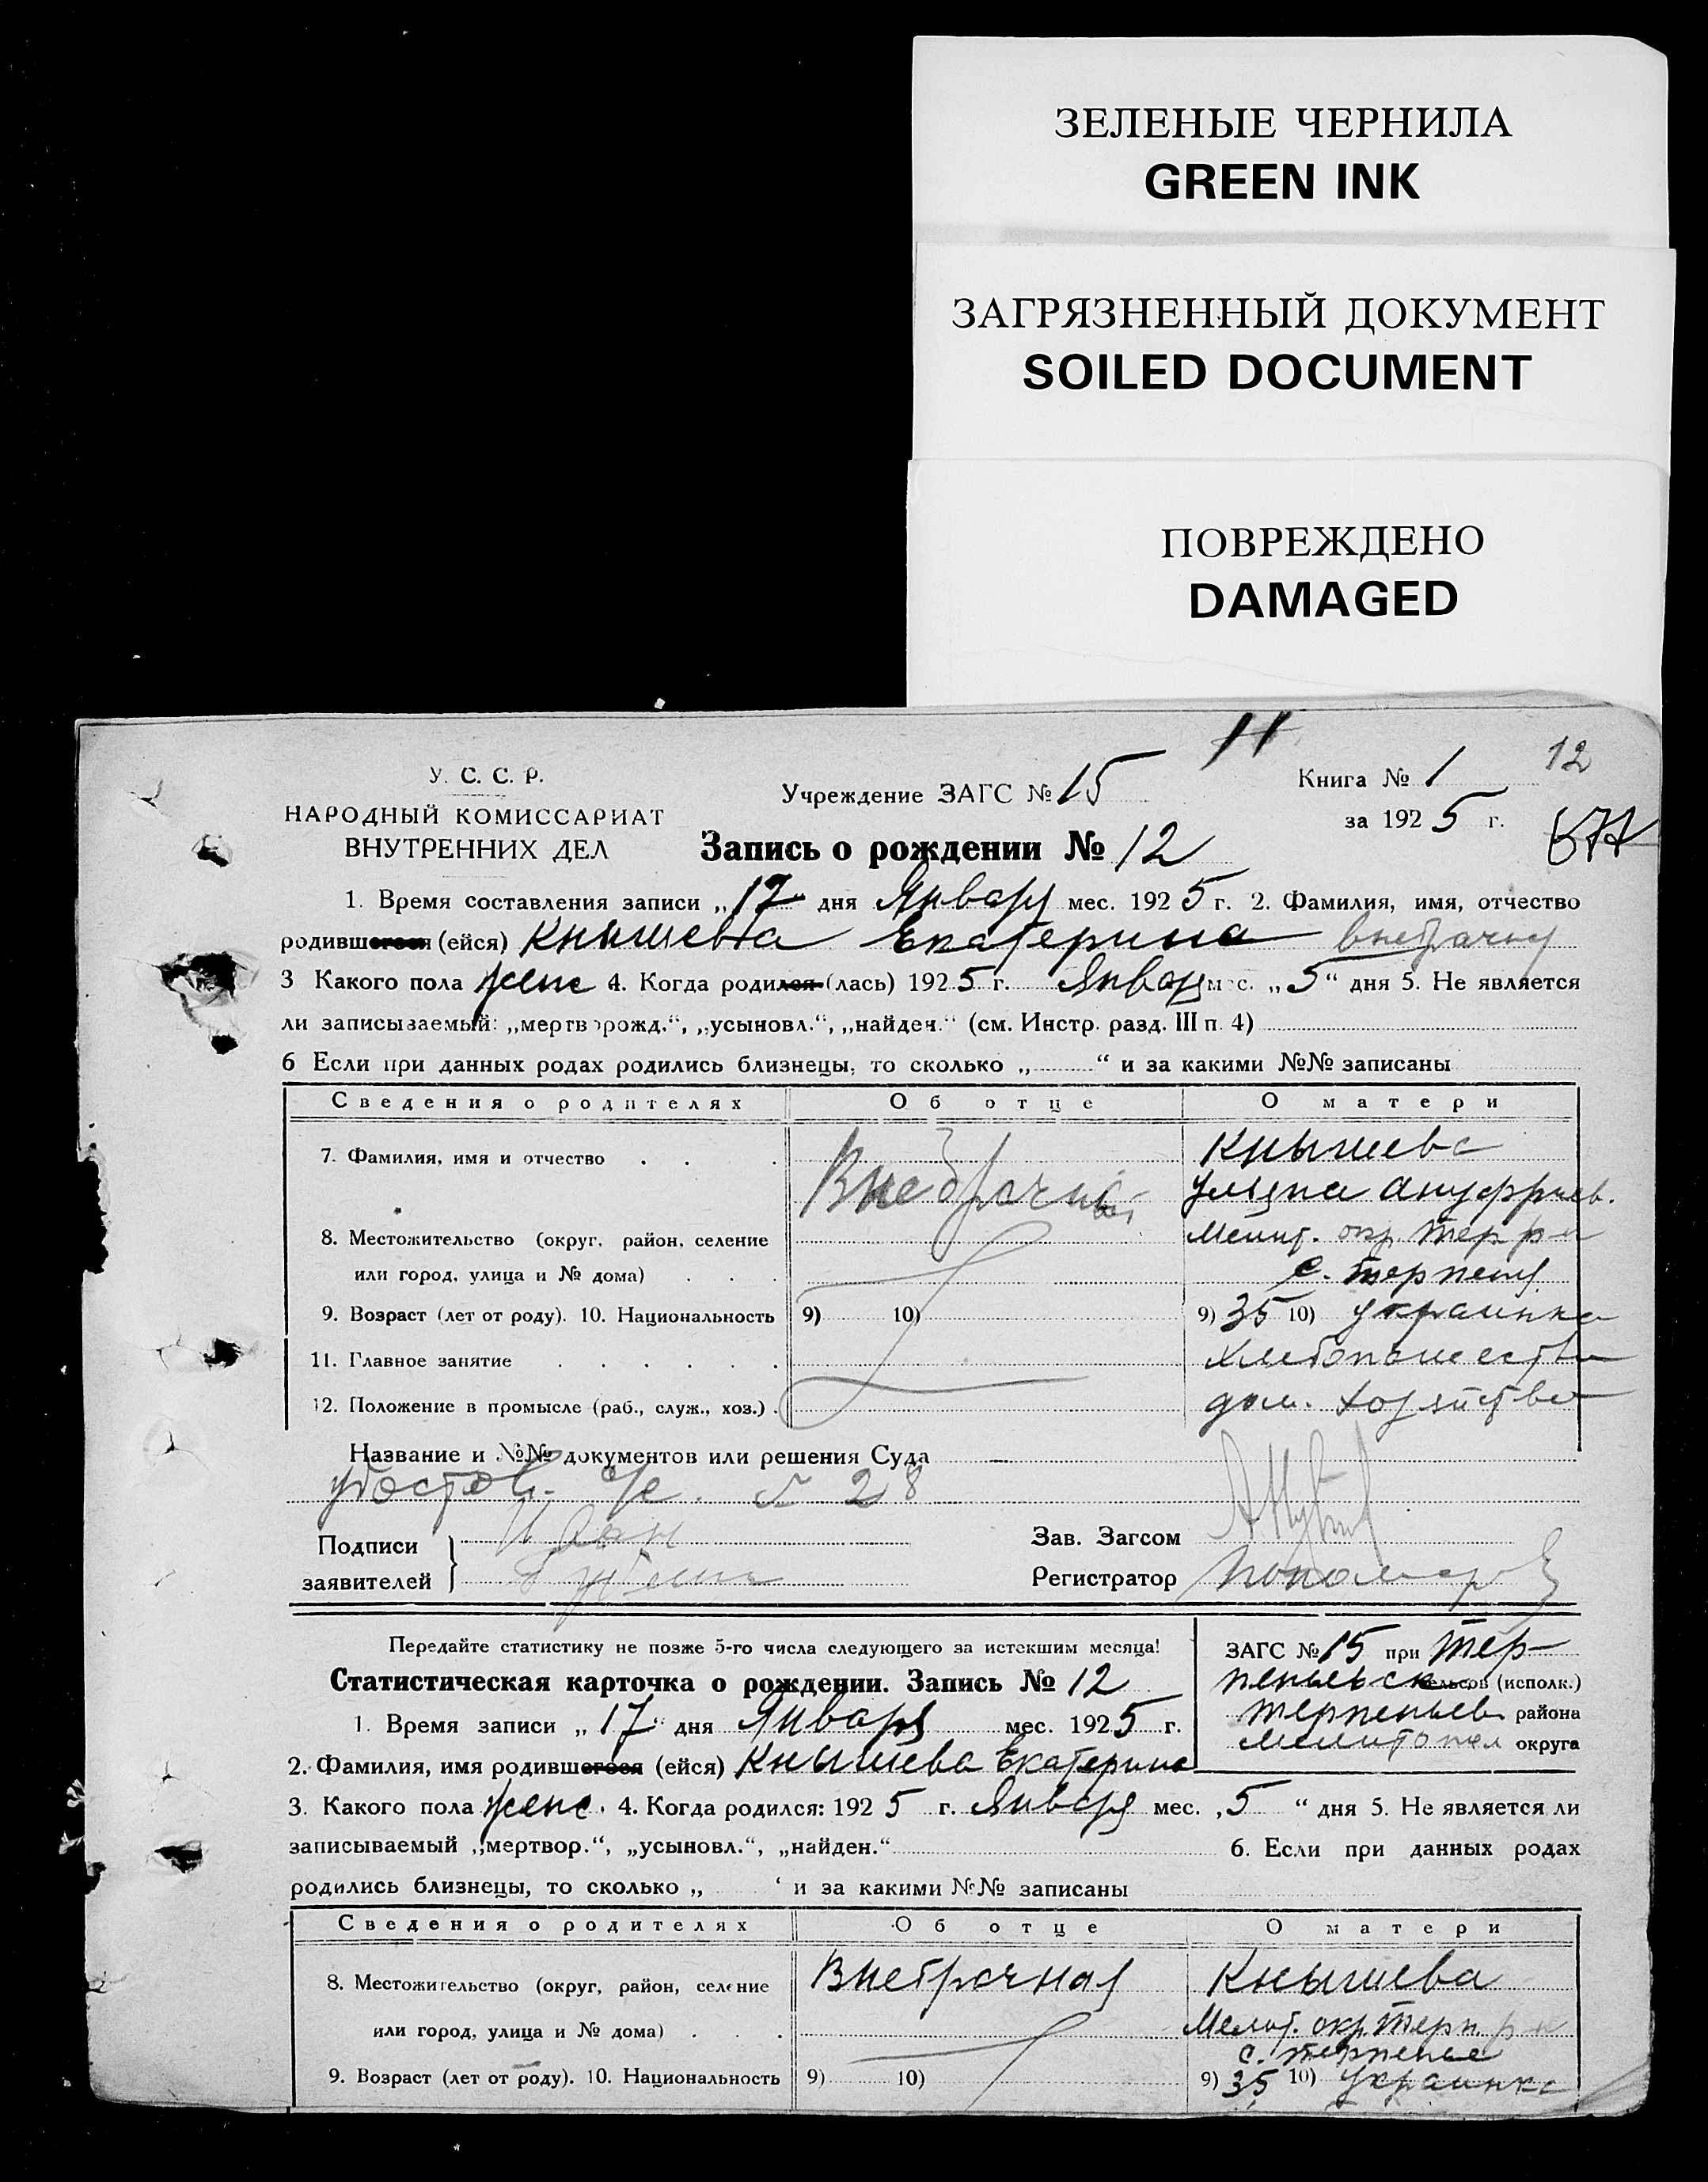 ЗЕЛЕНЫЕ ЧЕРНИЛА
GREEN INK
ЗАГРЯЗНЕННЫЙ ДОКУМЕНТ
SOILED DOCUMENT
ПОВРЕЖДЕНО
DAMAGED
11
12
У. С. С. Р.
НАРОДНЫЙ КОМИССАРИАТ
ВНУТРЕННИХ ДЕЛ
Учреждение ЗАГС № 15
Книга № 1
за 1925 г.
Запись о рождении № 12
1. Время составления записи „17“ дня Января мес. 1925 г. 2. Фамилия, имя, отчество
родившегося (ейся) Кнышева Екатерина внебрачная
3 Какого пола женс 4. Когда родился (лась) 1925 г. Января мес. „5“ дня 5. Не является
ли записываемый: „мертворожд.“, „усыновл.“, „найден.“ (см. Инстр. разд. III п. 4)
6 Если при данных родах родились близнецы, то сколько „ “ и за какими №№ записаны
Сведения о родителях Об отце О матери
7. Фамилия, имя и отчество Внебрачная Кнышева
Ульяна Ануфриев.
8. Местожительство (округ, район, селение Мелит. окр. Терп р н
или город, улица и № дома) с. Терпенья
9. Возраст (лет от роду). 10. Национальность 9) 10) 9) 35 10) украинка
11. Главное занятие хлебопашество
12. Положение в промысле (раб., служ., хоз.) дом. хозяйство
Название и №№ документов или решения Суда
удостов. с/с. № 28
Подписи
заявителей
Зав. Загсом
Регистратор Пономарев
Передайте статистику не позже 5-го числа следующего за истекшим месяца!
Статистическая карточка о рождении. Запись № 12
ЗАГС № 15 при Тер-
пеньевск сельсов (исполк.)
Терпеньев района
Мелитопол округа
1. Время записи „17“ дня Января мес. 1925 г.
2. Фамилия, имя родившегося (ейся) Кнышева Екатерина
3. Какого пола женс. 4. Когда родился: 1925 г. Января мес. „5“ дня 5. Не является ли
записываемый „мертвор.“, „усыновл.“, „найден.“ 6. Если при данных родах
родились близнецы, то сколько „ “ и за какими №№ записаны
Сведения о родителях Об отце О матери
8. Местожительство (округ, район, селение Внебрачная Кнышева
или город, улица и № дома) Мелит. окр. Терп. р н
с. Терпенье
9. Возраст (лет от роду). 10. Национальность 9) 10) 9) 35 10) Украинка